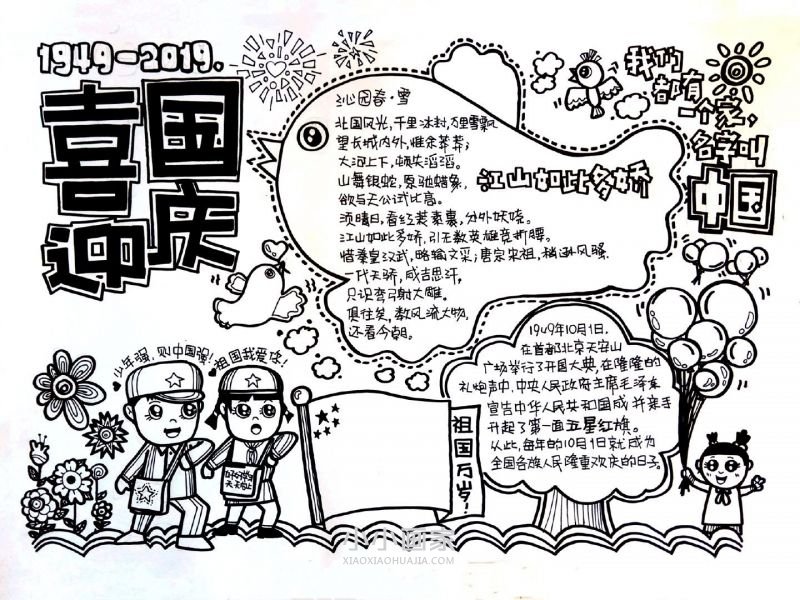 1949-2019.
喜迎
国庆
沁园春·雪
北国风光,千里冰封,万里雪飘
望长城内外,惟余莽莽;
大河上下,顿失滔滔。
山舞银蛇,原驰蜡象,
欲与天公试比高。
须晴日,看红装素裹,分外妖娆。
江山如此多娇,引无数英雄竞折腰。
惜秦皇汉武,略输文采;唐宗宋祖,稍逊风骚
一代天骄,成吉思汗,
只识弯弓射大雕。
俱往矣,数风流人物,
还看今朝。
江山如此多娇
我们
都有
一个家,
名字叫
中国
少年强,则中国强!
祖国我爱你!
好好学习
天天向上
祖国万岁!
1949年10月1日,
在首都北京天安门
广场举行了开国大典,在隆隆的
礼炮声中,中央人民政府主席毛泽东
宣告中华人民共和国成并亲手
升起了第一面五星红旗。
从此,每年的10月1日就成为
全国各族人民隆重欢庆的日子。
小小画家
XIAOXIAOHUAJIA.COM